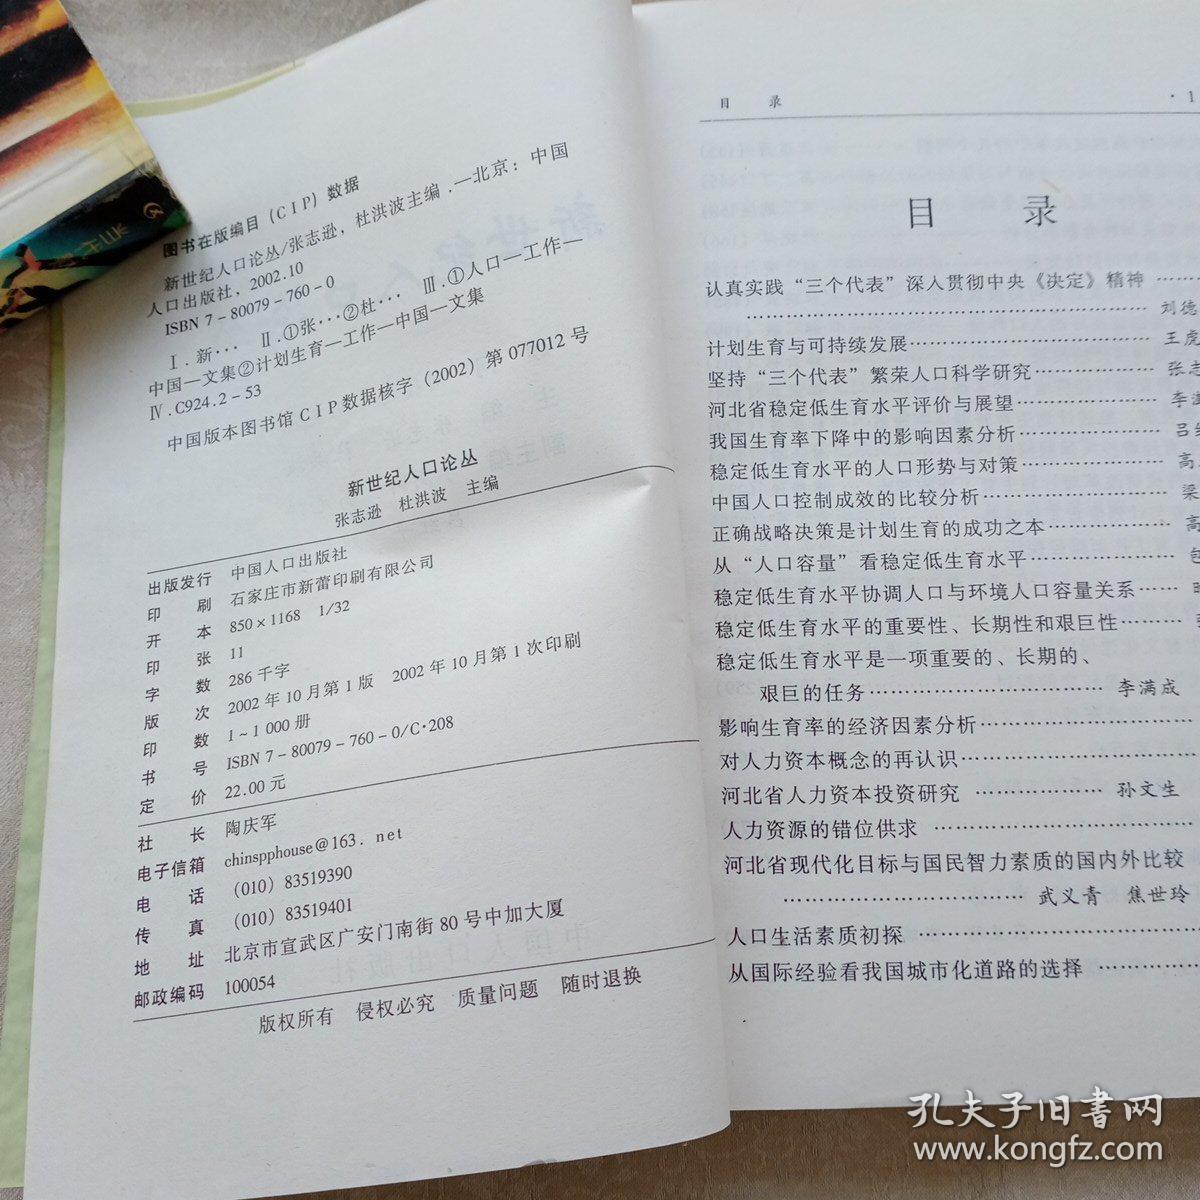 图书在版编目(CIP)数据
新世纪人口论丛/张志逊,杜洪波主编.—北京:中国
人口出版社,2002.10
ISBN 7-80079-760-0
Ⅰ.新… Ⅱ.①张…②杜… Ⅲ.①人口—工作—
中国—文集②计划生育—工作—中国—文集
Ⅳ.C924.2-53
中国版本图书馆CIP数据核字(2002)第077012号
新世纪人口论丛
张志逊 杜洪波 主编
出版发行 中国人口出版社
印刷 石家庄市新蕾印刷有限公司
开本 850×1168 1/32
印张 11
字数 286千字
版次 2002年10月第1版 2002年10月第1次印刷
印数 1~1 000册
书号 ISBN 7-80079-760-0/C·208
定价 22.00元
社长 陶庆军
电子信箱 chinspphouse@163.net
电话 (010)83519390
传真 (010)83519401
地址 北京市宣武区广安门南街80号中加大厦
邮政编码 100054
版权所有 侵权必究 质量问题 随时退换
目 录 ·1
目 录
认真实践“三个代表”深入贯彻中央《决定》精神……
……刘德
计划生育与可持续发展……王虎
坚持“三个代表”繁荣人口科学研究……张志
河北省稳定低生育水平评价与展望……李满
我国生育率下降中的影响因素分析……吕
稳定低生育水平的人口形势与对策……高
中国人口控制成效的比较分析……梁
正确战略决策是计划生育的成功之本……高
从“人口容量”看稳定低生育水平……包
稳定低生育水平协调人口与环境人口容量关系……
稳定低生育水平的重要性、长期性和艰巨性……
稳定低生育水平是一项重要的、长期的、
艰巨的任务……李满成
影响生育率的经济因素分析……
对人力资本概念的再认识……
河北省人力资本投资研究……孙文生
人力资源的错位供求……
河北省现代化目标与国民智力素质的国内外比较
……武义青 焦世玲
人口生活素质初探……
从国际经验看我国城市化道路的选择……
孔夫子旧书网
www.kongfz.com